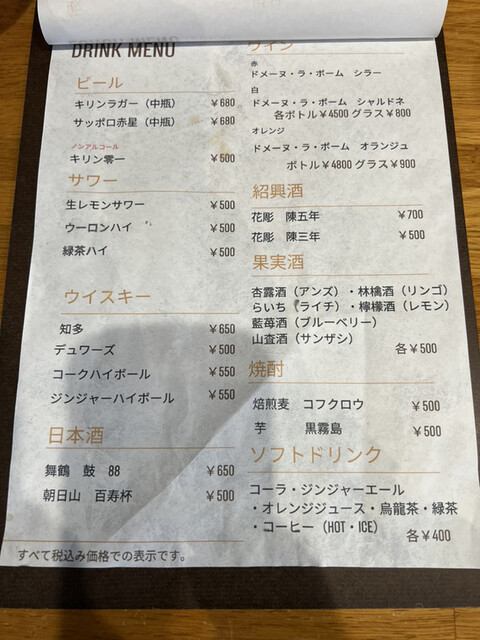 DRINK MENU
ビール
キリンラガー（中瓶） ￥680
サッポロ赤星（中瓶） ￥680
ノンアルコール
キリン零一 ￥500
サワー
生レモンサワー ￥500
ウーロンハイ ￥500
緑茶ハイ ￥500
ウイスキー
知多 ￥650
デュワーズ ￥500
コークハイボール ￥550
ジンジャーハイボール ￥550
日本酒
舞鶴 鼓 88 ￥650
朝日山 百寿杯 ￥500
すべて税込み価格での表示です。
ワイン
赤
ドメーヌ・ラ・ボーム シラー
白
ドメーヌ・ラ・ボーム シャルドネ
各ボトル￥4500 グラス￥800
オレンジ
ドメーヌ・ラ・ボーム オランジュ
ボトル￥4800 グラス￥900
紹興酒
花彫 陳五年 ￥700
花彫 陳三年 ￥500
果実酒
杏露酒（アンズ）・林檎酒（リンゴ）
らいち（ライチ）・檸檬酒（レモン）
藍苺酒（ブルーベリー）
山査酒（サンザシ）
各￥500
焼酎
焙煎麦 コフクロウ ￥500
芋 黒霧島 ￥500
ソフトドリンク
コーラ・ジンジャーエール
・オレンジジュース・烏龍茶・緑茶
・コーヒー（HOT・ICE）
各￥400